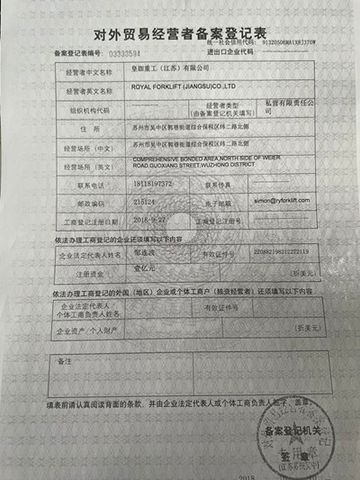 对外贸易经营者备案登记表
统一社会信用代码：
备案登记表编号：03333594
进出口企业代码：
经营者中文名称 皇加重工（江苏）有限公司
经营者英文名称 ROYAL FORKLIFT (JIANGSU)CO.,LTD
组织机构代码 经营者类型（由备案登记机关填写） 私营有限责任公司
住 所 苏州市吴中区郭巷街道综合保税区纬二路北侧
经营场所（中文） 苏州市吴中区郭巷街道综合保税区纬二路北侧
经营场所（英文） COMPREHENSIVE BONDED AREA,NORTH SIDE OF WEIER ROAD,GUOXIANG STREET,WUZHONG DISTRICT
联系电话 18118197372 联系传真
邮政编码 215124 电子邮箱 simon@ryforklift.com
工商登记注册日期 2018-9-27 工商登记注册号
依法办理工商登记的企业还须填写以下内容
企业法定代表人姓名 有效证件号
注册资金 壹亿元 （折美元）
依法办理工商登记的外国（地区）企业或个体工商户（独资经营者）还须填写以下内容
企业法定代表人/个体工商负责人姓名 有效证件号
企业资产/个人财产 （折美元）
备注
填表前请认真阅读背面的条款，并由企业法定代表人或个体工商负责人签字、盖章。
备案登记机关
签 章
2018